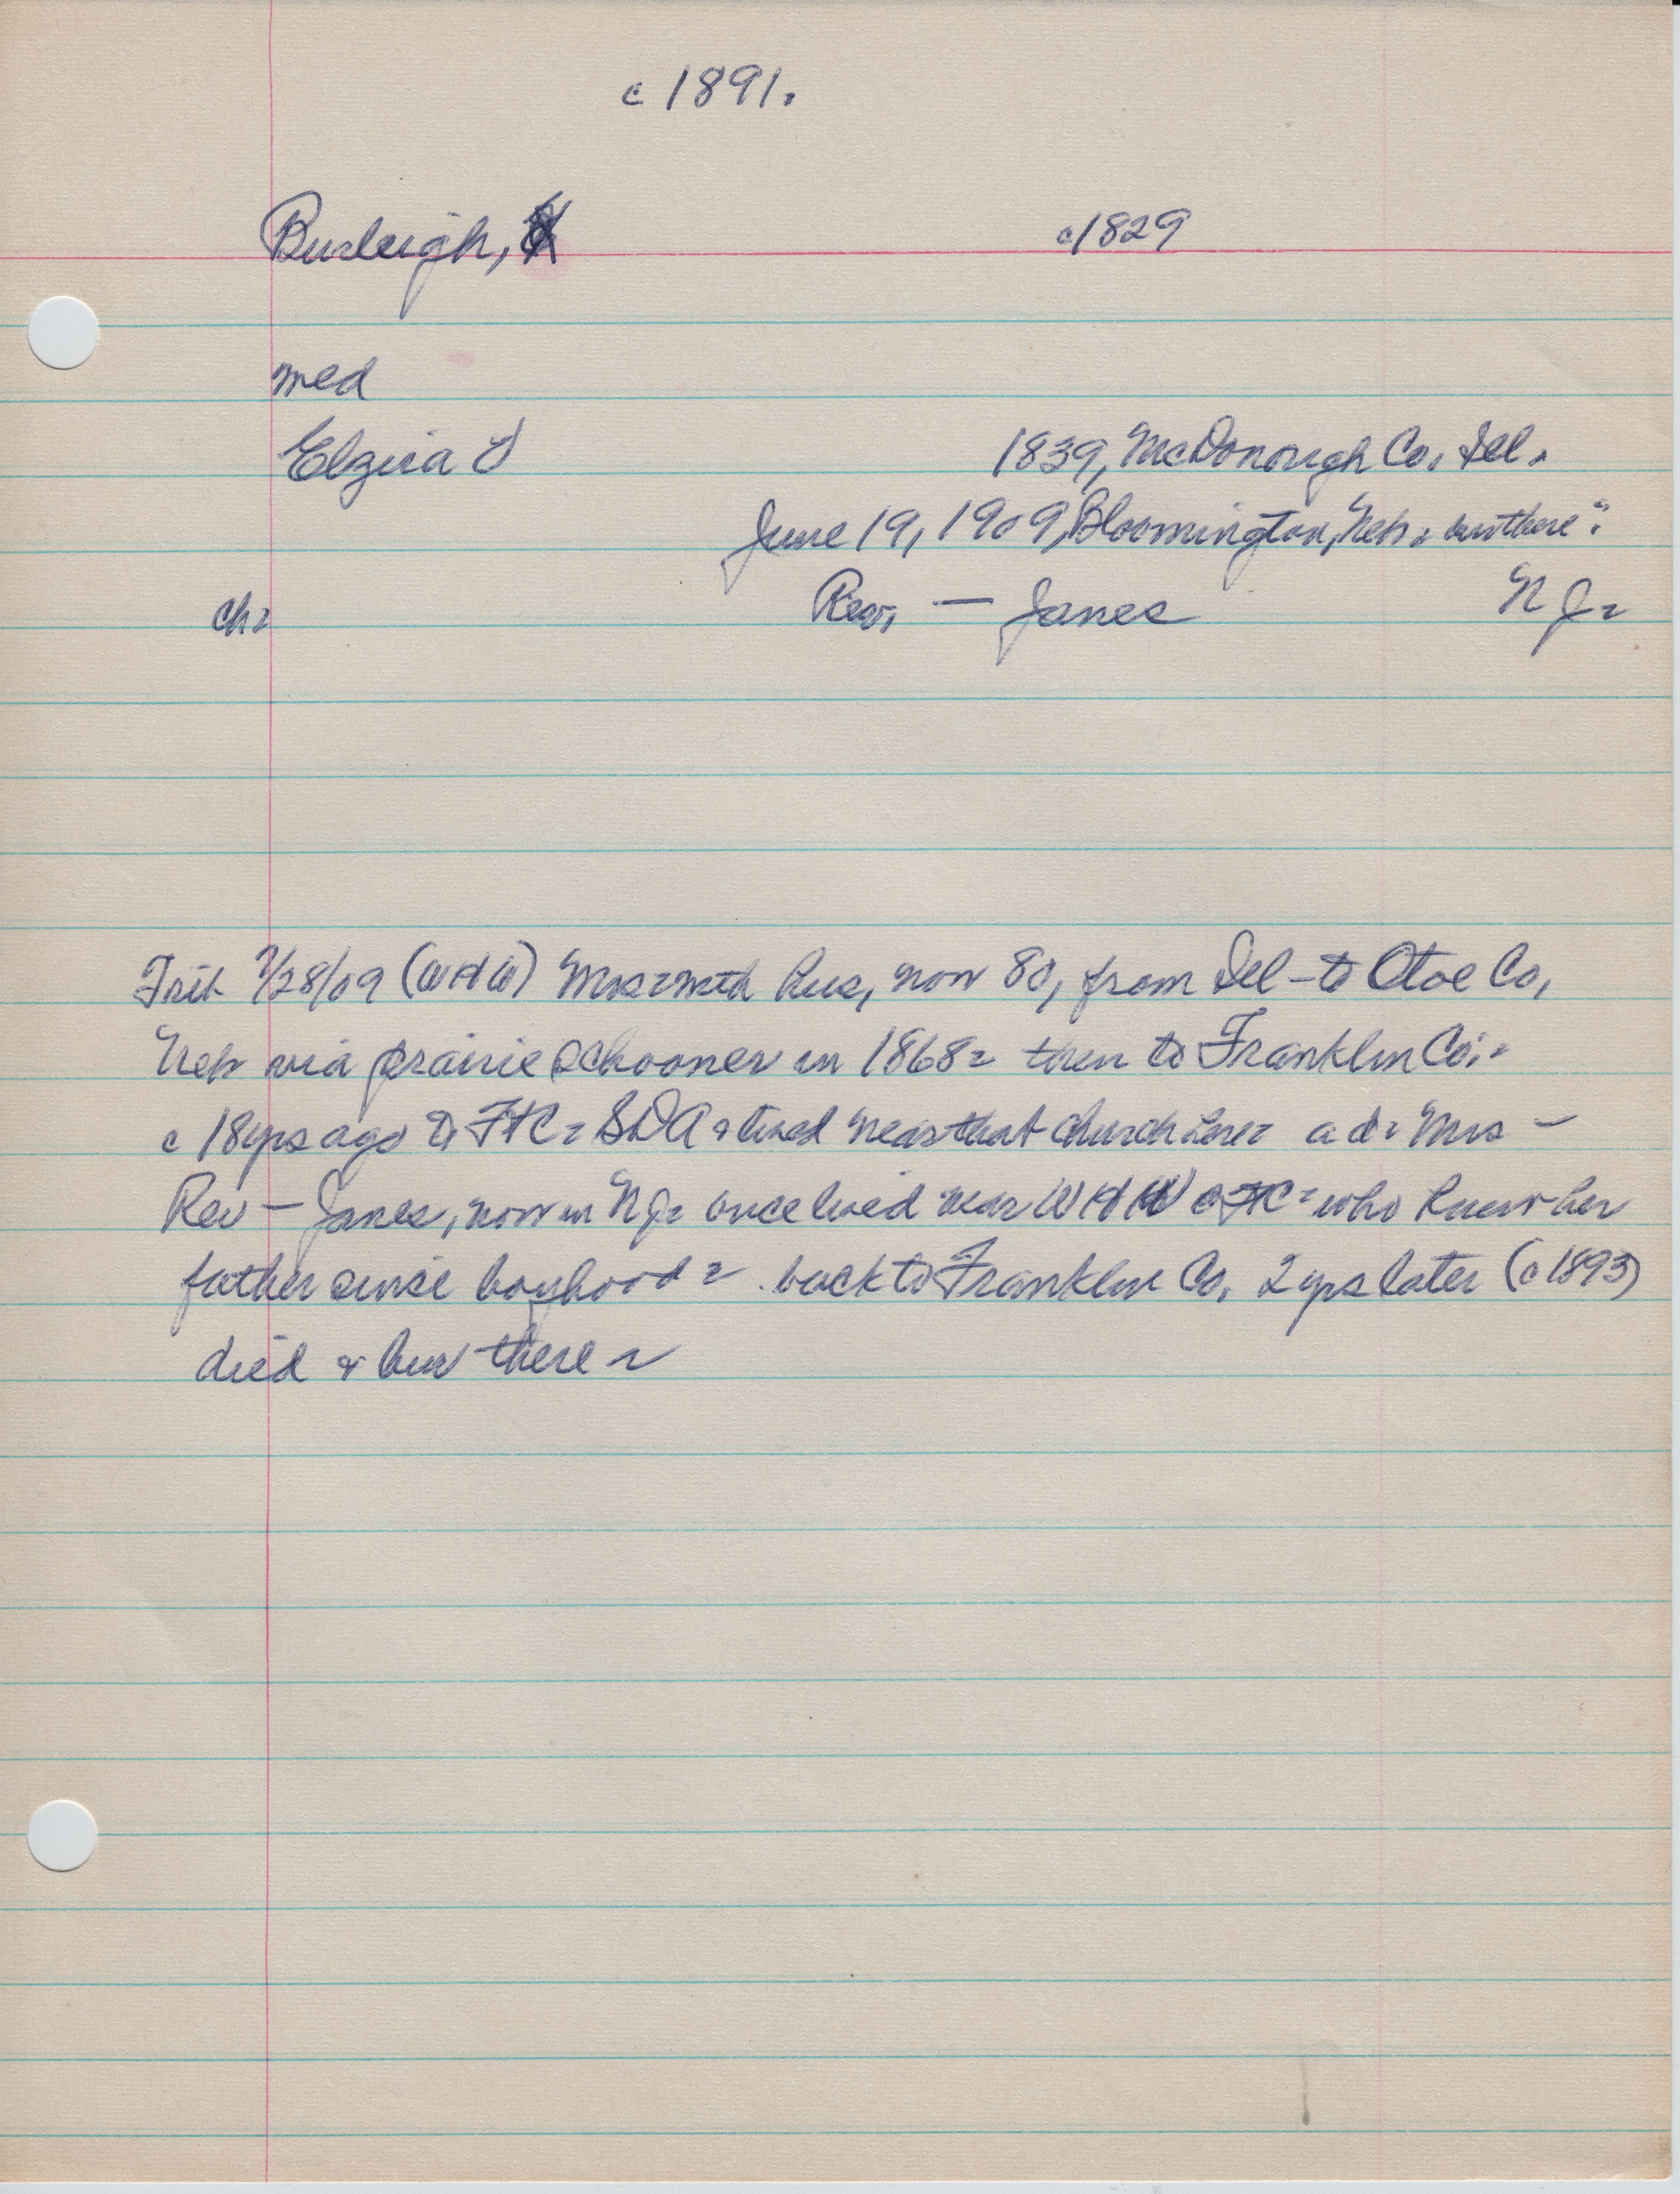 c 1891.
Burleigh, c1829
med
Elzira J 1839, McDonough Co. Ill.
June 19, 1909, Bloomington, Neb. bur there
ch: Rev. — Janes N J-
Trib 7/28/09 (W H W) Mrs- with hus, now 80, from Ill - to Otoe Co,
Neb via prairie schooner in 1868- then to Franklin Co.-
c 18 yrs ago to FtC- SDA & lived near that church here- a d- Mrs —
Rev — Janes, now in N J- once lived near W H W FtC- who knew her
father since boyhood- back to Franklin Co. 2 yrs later (c 1893)
died & bur there-